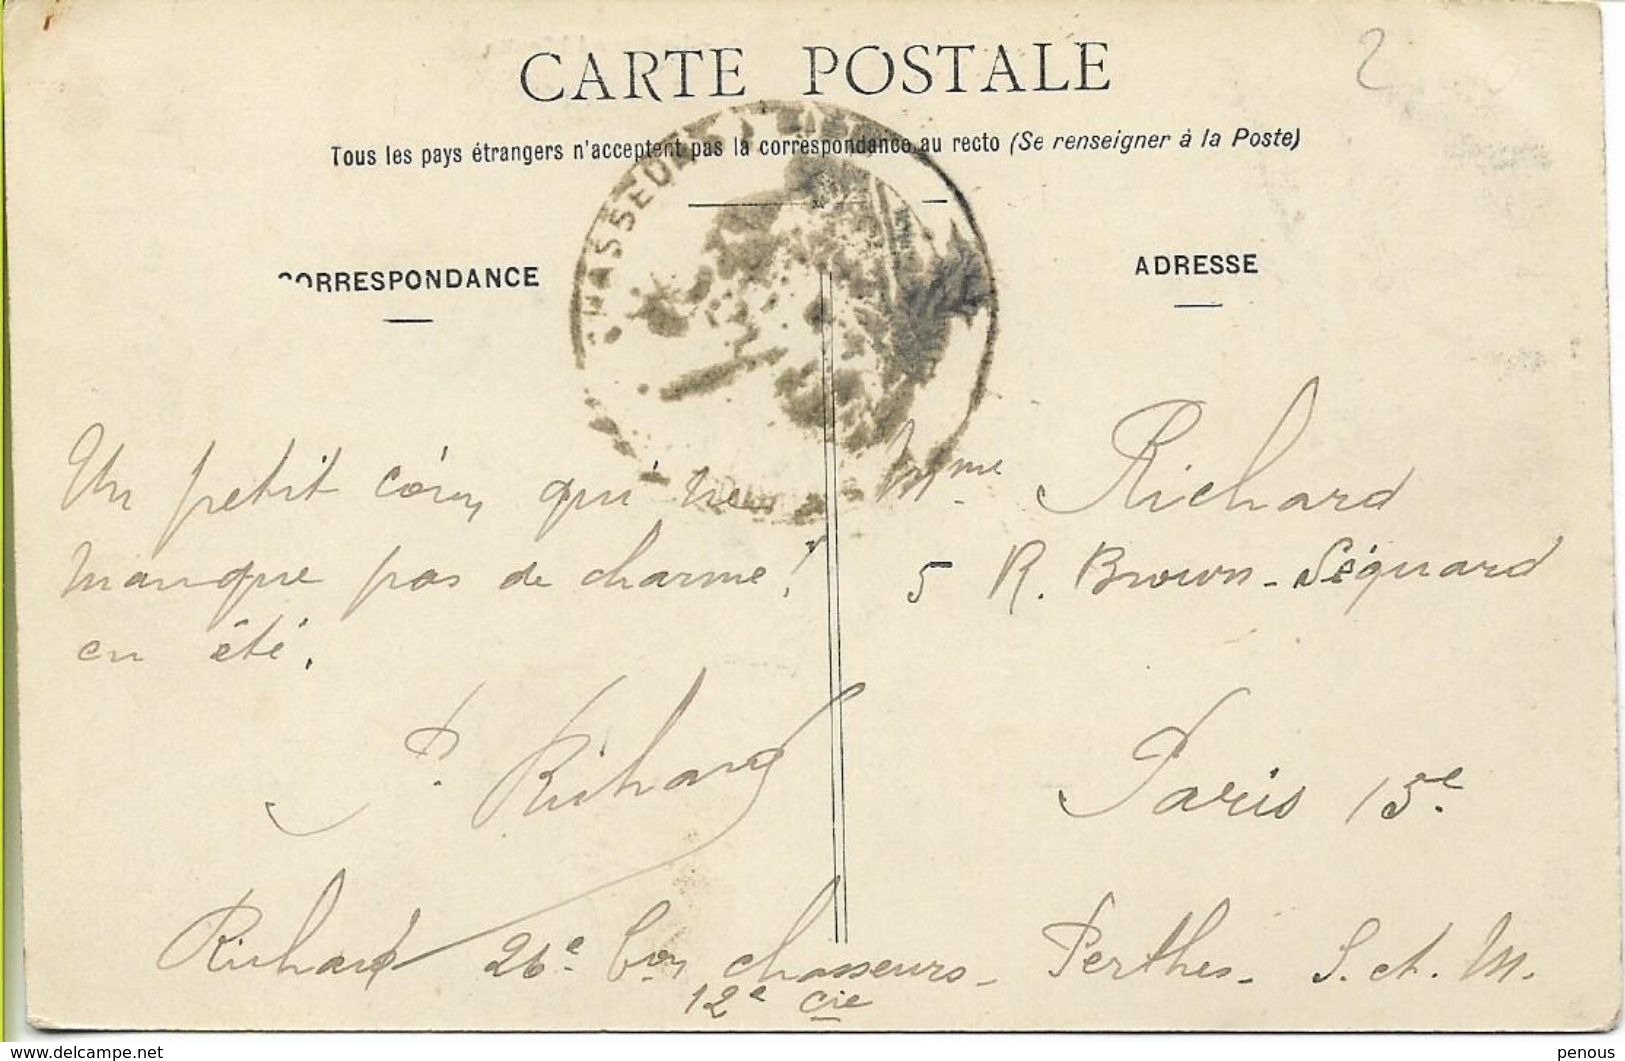 2
CARTE POSTALE
Tous les pays étrangers n'acceptent pas la correspondance au recto (Se renseigner à la Poste)
CORRESPONDANCE
ADRESSE
Un petit coin qui ne
manque pas de charme !
en été.
P. Richard
Richard 26e Bon chasseurs -
12e Cie
Mme Richard
5 R. Brown-Séquard
Paris 15e
Perthes - S. et. M.
www.delcampe.net
penous